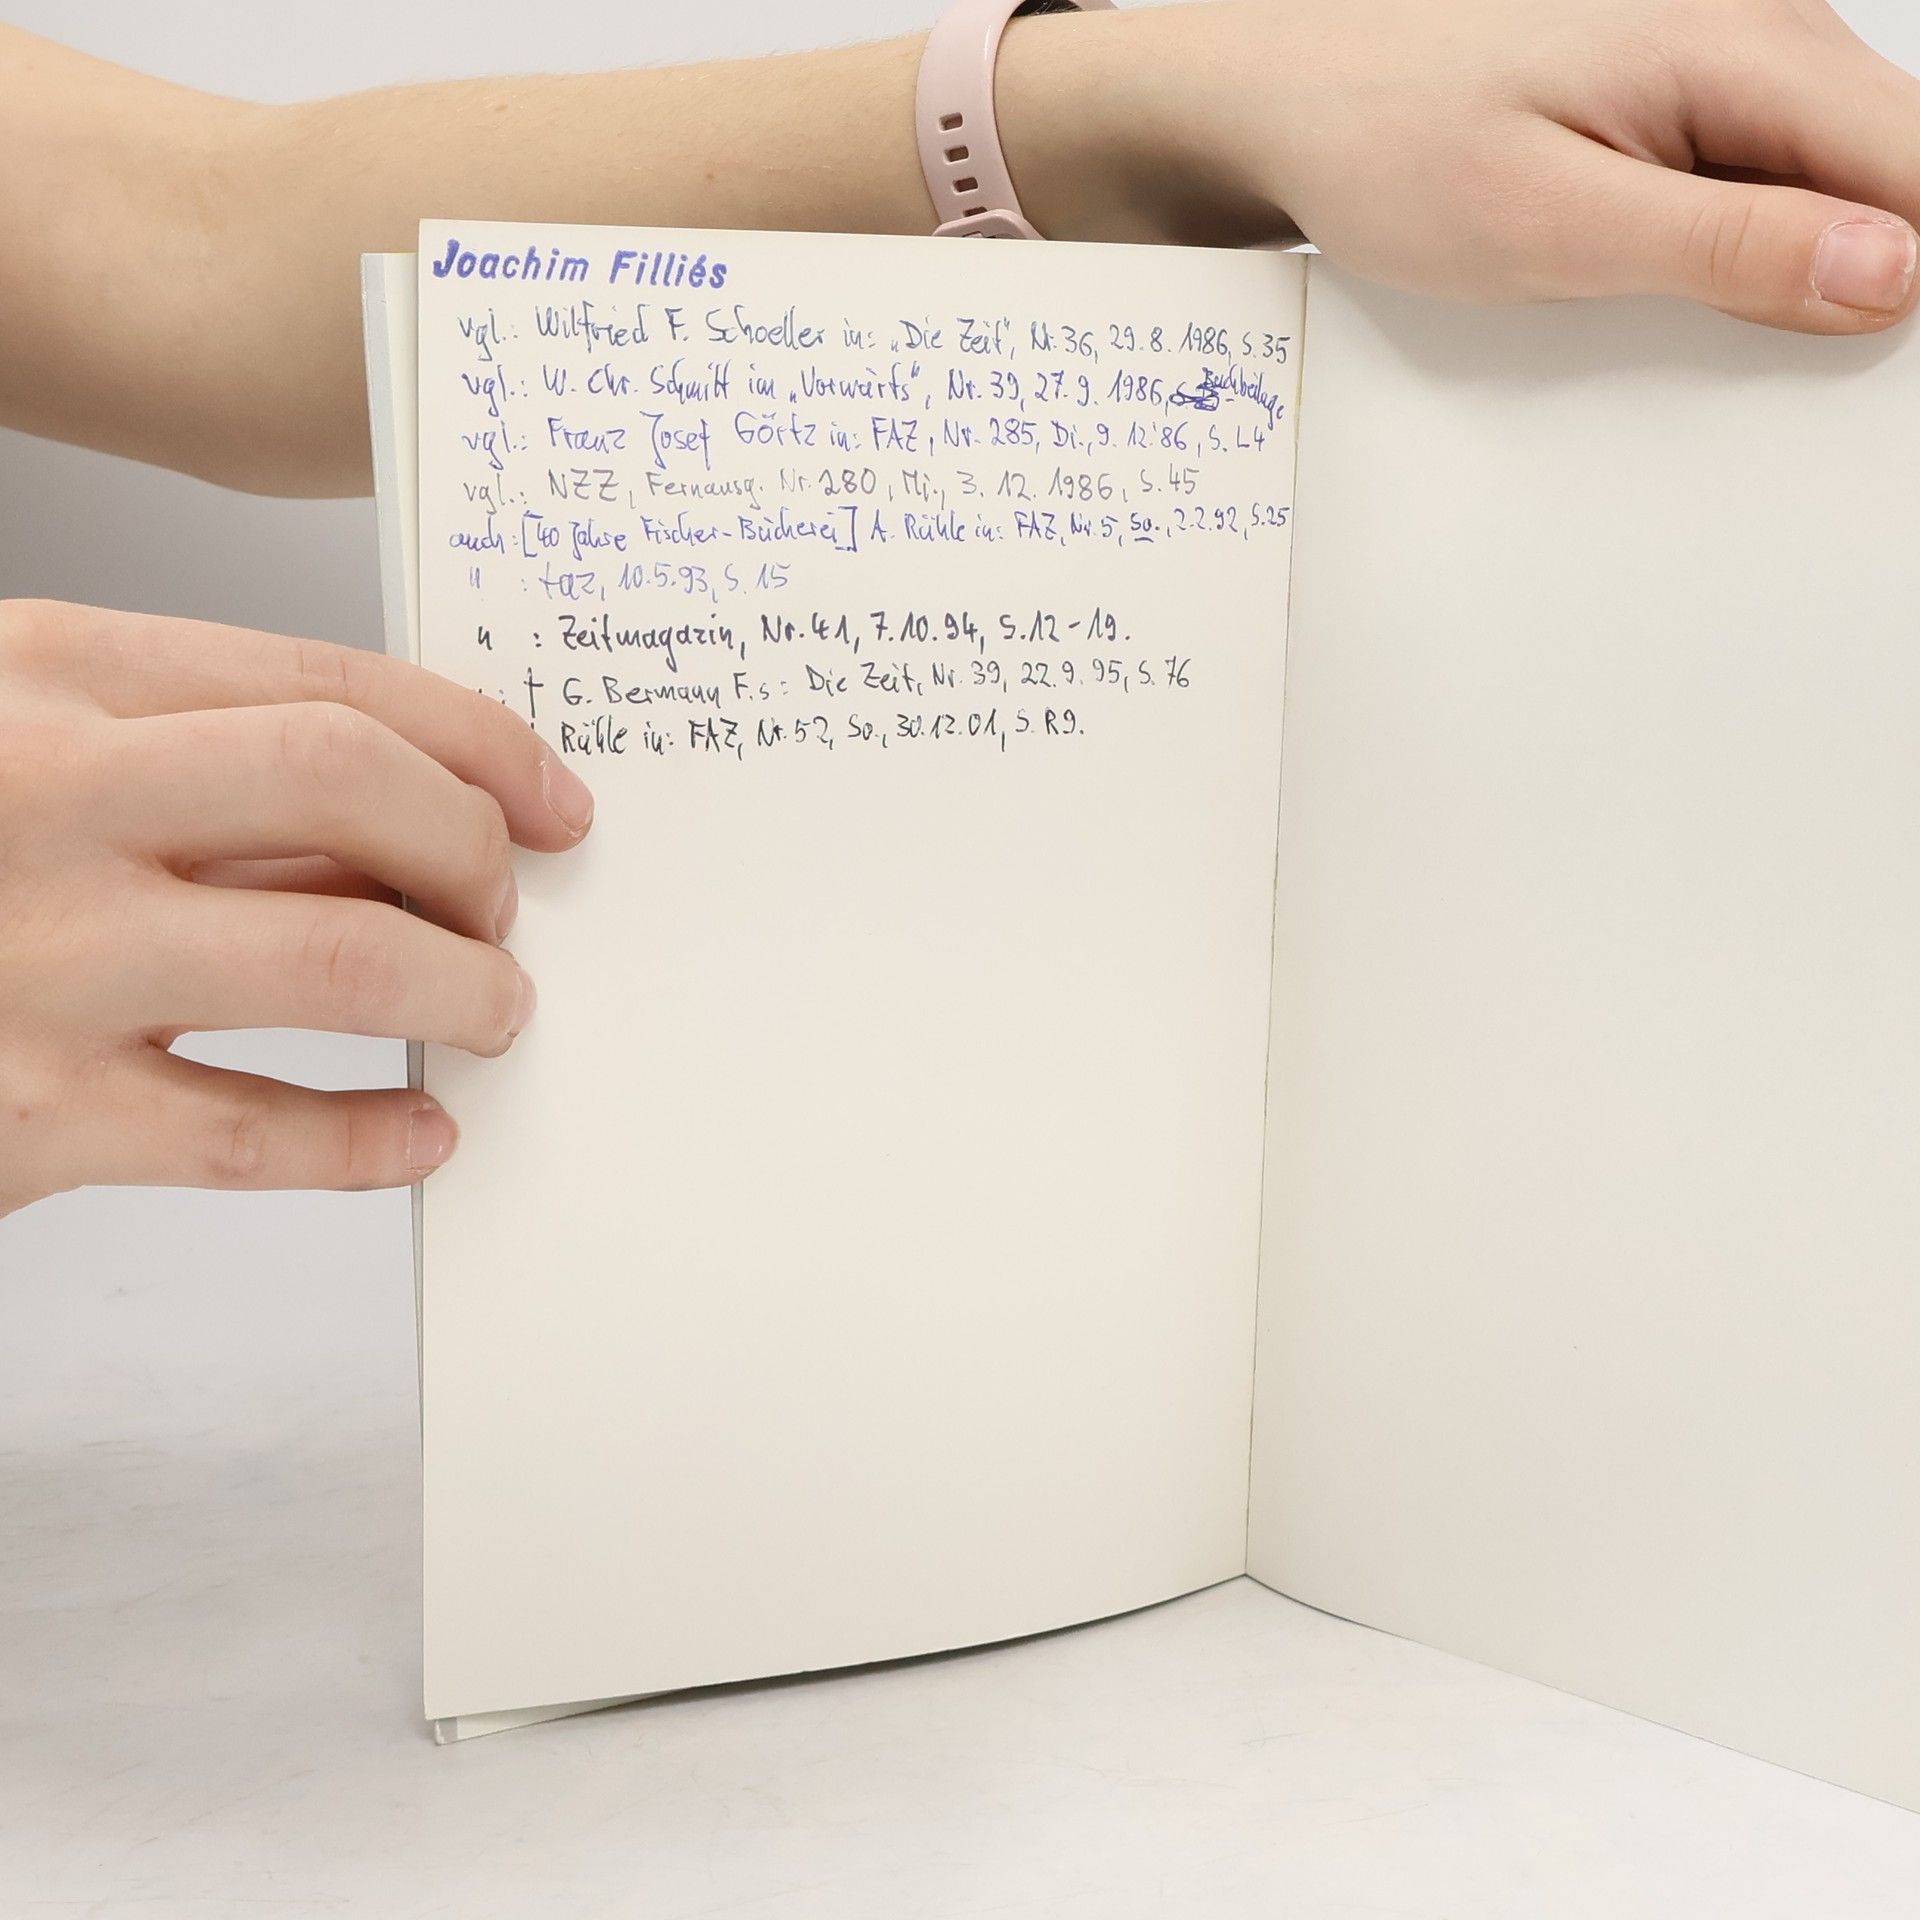 Joachim Filliés
vgl.: Wilfried F. Schoeller in: „Die Zeit", Nr. 36, 29.8.1986, S. 35
vgl.: W. Chr. Schmitt im „Vorwärts", Nr. 39, 27.9.1986, Buchbeilage
vgl.: Franz Josef Görtz in: FAZ, Nr. 285, Di., 9.12.'86, S. L4
vgl.: NZZ, Fernausg. Nr. 280, Mi., 3.12.1986, S. 45
auch: [40 Jahre Fischer-Bücherei] A. Rühle in: FAZ, Nr. 5, So., 2.2.92, S. 25
" : taz, 10.5.93, S. 15
" : Zeitmagazin, Nr. 41, 7.10.94, S. 12-19.
: † G. Bermann F.s: Die Zeit, Nr. 39, 22.9.95, S. 76
Rühle in: FAZ, Nr. 52, So., 30.12.01, S. R9.